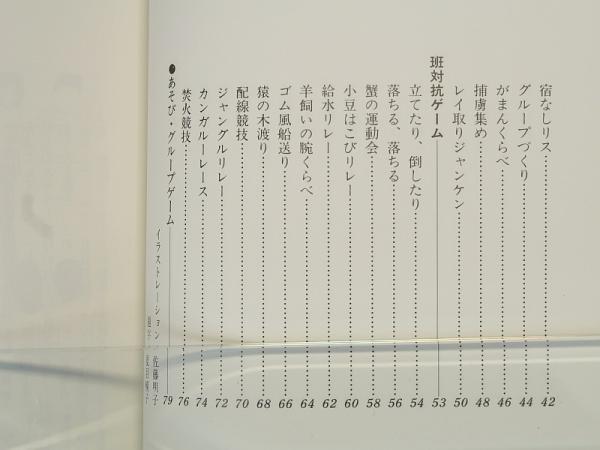 宿なしリス 42
グループづくり 44
がまんくらべ 46
捕虜集め 48
レイ取りジャンケン 50
班対抗ゲーム 53
立てたり、倒したり 54
落ちる、落ちる 56
蟹の運動会 58
小豆はこびリレー 60
給水リレー 62
羊飼いの腕くらべ 64
ゴム風船送り 66
猿の木渡り 68
配線競技 70
ジャングルリレー 72
カンガルーレース 74
焚火競技 76
●あそび・グループゲーム 79
イラストレーション 佐藤明子